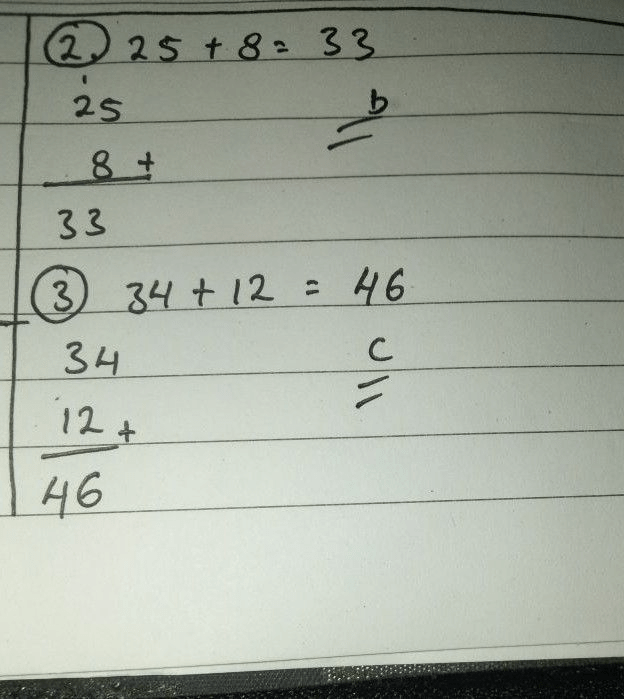 2. 25 + 8 = 33
1
25
b
8 +
33
3 34 + 12 = 46
34
c
12 +
46